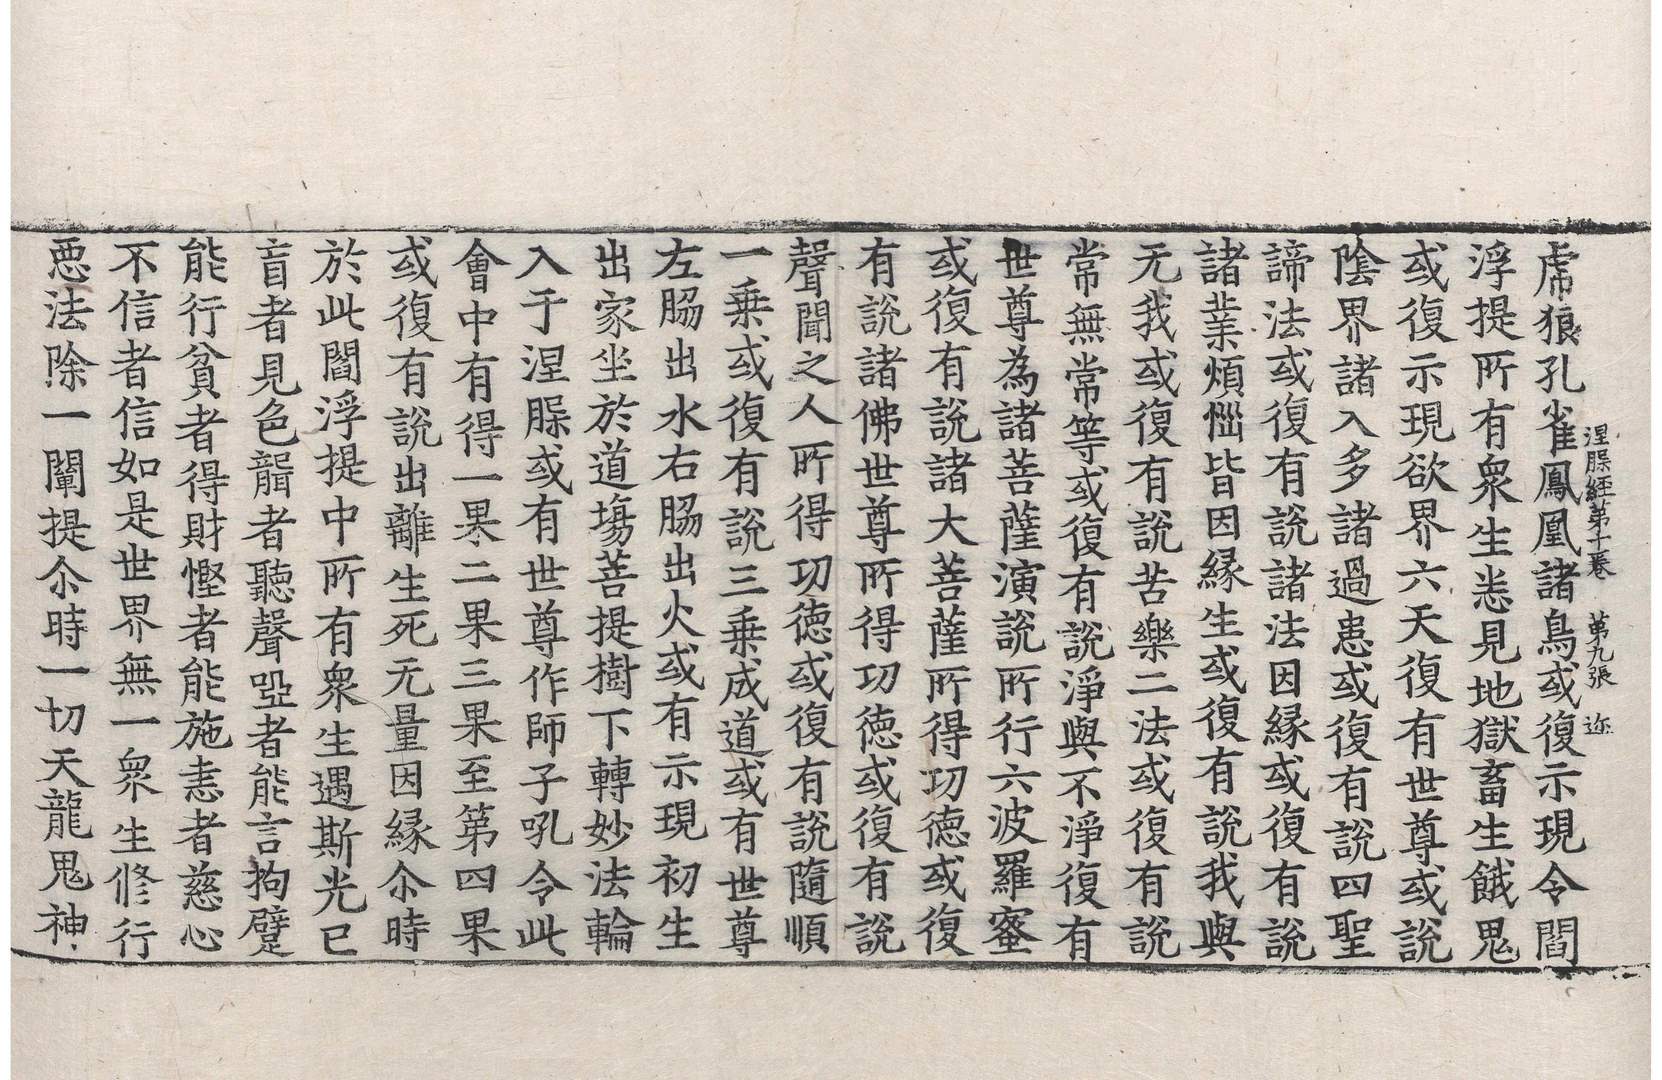 涅槃經第十卷 第九張 迩
虎狼孔雀鳳凰諸鳥或復示現令閻
浮提所有衆生悉見地獄畜生餓鬼
或復示現欲界六天復有世尊或說
陰界諸入多諸過患或復有說四聖
諦法或復有說諸法因縁或復有說
諸業煩惱皆因縁生或復有說我與
无我或復有說苦樂二法或復有說
常無常等或復有說淨與不淨復有
世尊為諸菩薩演說所行六波羅蜜
或復有說諸大菩薩所得功徳或復
有說諸佛世尊所得功徳或復有說
聲聞之人所得功徳或復有說隨順
一乗或復有說三乗成道或有世尊
左脇出水右脇出火或有示現初生
出家坐於道塲菩提樹下轉妙法輪
入于涅槃或有世尊作師子吼令此
會中有得一果二果三果至第四果
或復有說出離生死无量因縁尒時
於此閻浮提中所有衆生遇斯光已
盲者見色聾者聽聲啞者能言拘躄
能行貧者得財慳者能施恚者慈心
不信者信如是世界無一衆生修行
惡法除一闡提尒時一切天龍鬼神